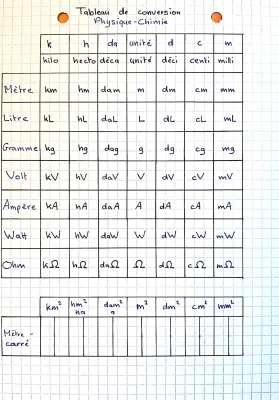 Tableau de conversion
Physique-Chimie
k h da unité d c m
kilo hecto déca unité déci centi milli
Mètre km hm dam m dm cm mm
Litre kL hL daL L dL cL mL
Gramme kg hg dag g dg cg mg
Volt kV hV daV V dV cV mV
Ampère kA hA daA A dA cA mA
Watt kW hW daW W dW cW mW
Ohm kΩ hΩ daΩ Ω dΩ cΩ mΩ
km² hm² dam² m² dm² cm² mm²
ha a
Mètre-
carré